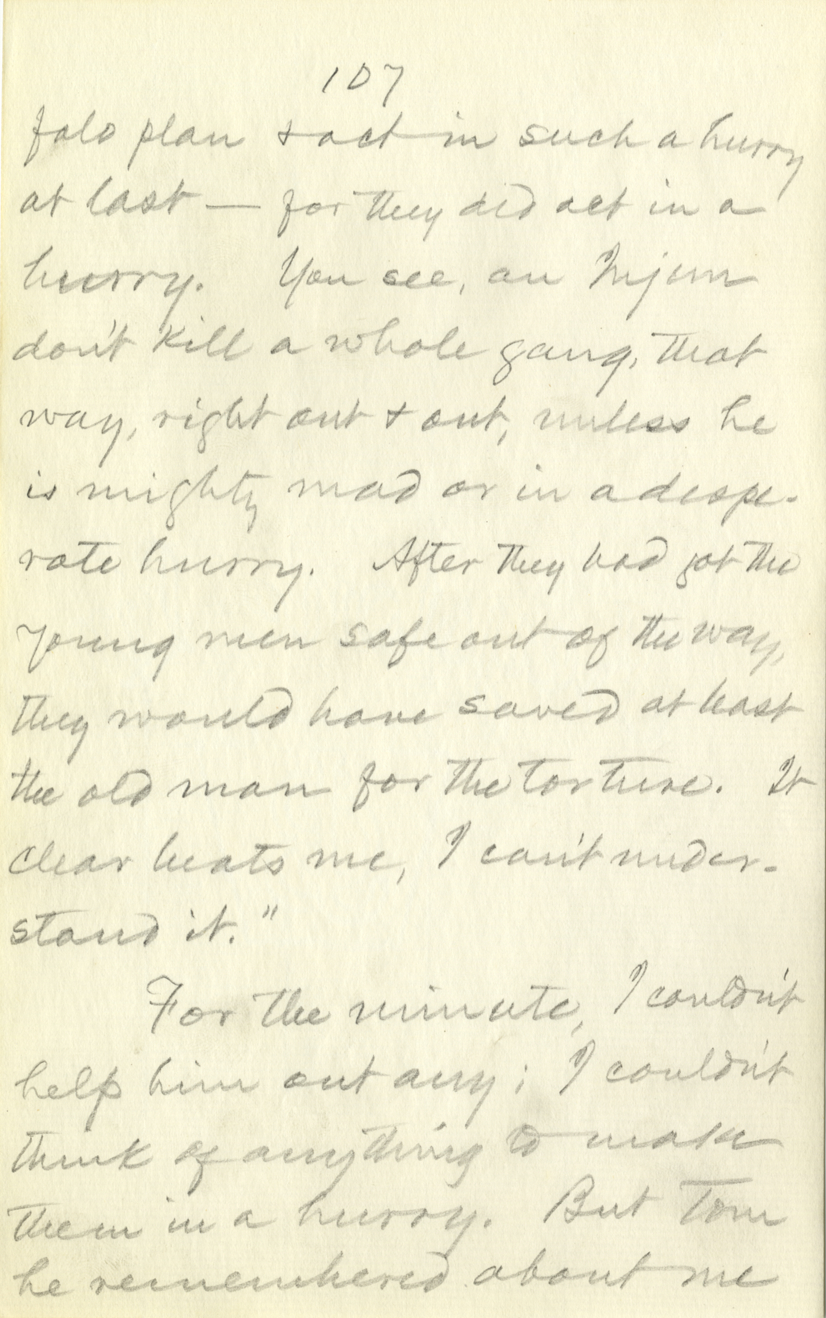 107
falo plan & act in such a hurry
at last — for they did act in a
hurry. You see, an Injun
don't kill a whole gang, that
way, right out & out, unless he
is mighty mad or in a despe-
rate hurry. After they had got the
young men safe out of the way,
they would have saved at least
the old man for the torture. It
clear beats me, I can't under-
stand it."
For the minute, I couldn't
help him out any; I couldn't
think of anything to make
them in a hurry. But Tom
he remembered about me